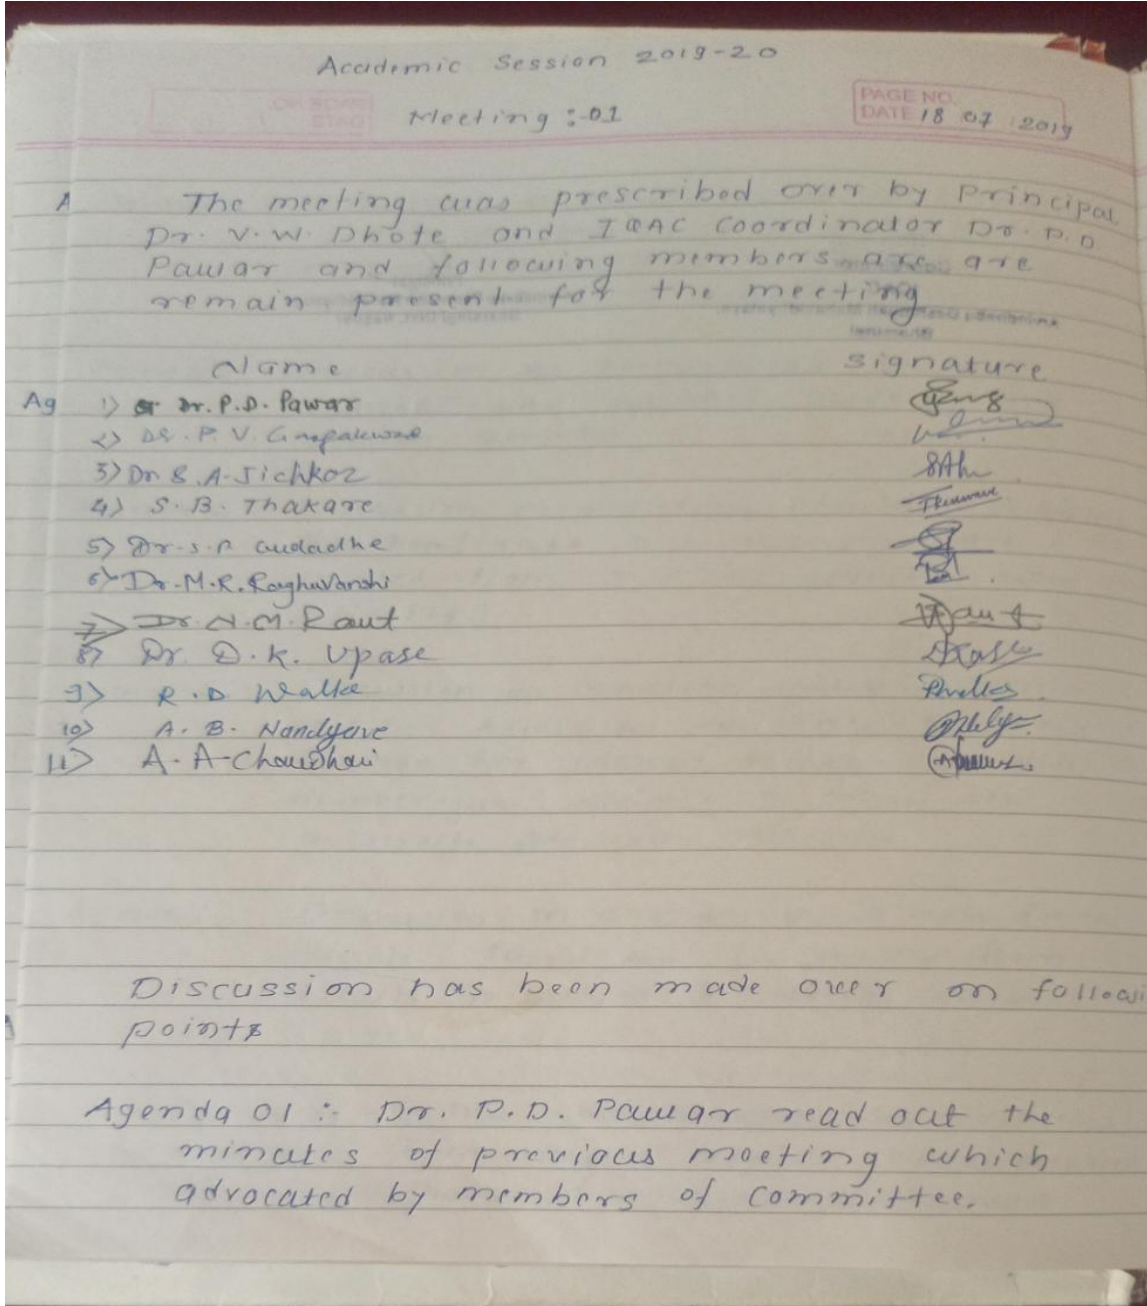 Academic Session 2019-20
Meeting :-01
PAGE NO.
DATE 18 07 2019
A The meeting was prescribed over by Principal
Dr. V. W. Dhote and IQAC Coordinator Dr. P. D
Pawar and following members are are
remain present for the meeting
Name Signature
Ag 1) Dr. P.D. Pawar
2) Dr. P. V.
3) Dr S. A. Jichkar
4) S. B. Thakare
5) Dr. S. P. Gudadhe
6) Dr. M. R. Raghuvanshi
7) Dr. N. M. Raut Raut
8) Dr. D. K. Upase
9) R. D. Walke
10) A. B. Nandgave
11) A. A. Chaudhari
Discussion has been made over on followi
points
Agenda 01 :- Dr. P.D. Pawar read out the
minutes of previous meeting which
advocated by members of committee.